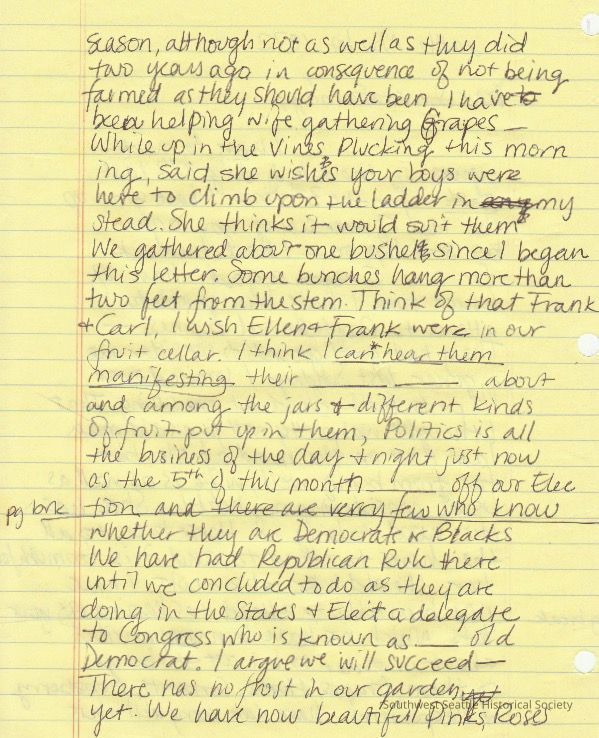 season, although not as well as they did
two years ago in consequence of not being
farmed as they should have been, I have to
been helping wife gathering Grapes —
While up in the Vines Plucking this morn
ing, said she wishes your boys were
here to climb upon the ladder in my
stead. She thinks it would suit them
We gathered about one bushel, since I began
this letter. Some bunches hang more than
two feet from the stem. Think of that Frank
+ Carl, I wish Ellen + Frank were in our
fruit cellar. I think I can hear them
manifesting their ______ ______ about
and among the jars + different kinds
of fruit put up in them, Politics is all
the business of the day + night just now
as the 5th of this month ______ off our Elec
pg brk tion, and there are verry few who know
whether they are Democrats or Blacks
We have had Republican Rule there
until we concluded to do as they are
doing in the States + Elect a delegate
to Congress who is known as ____ old
Democrat. I argue we will succeed —
There has no frost in our garden yet
yet. We have now beautiful Pinks, Roses
Southwest Seattle Historical Society